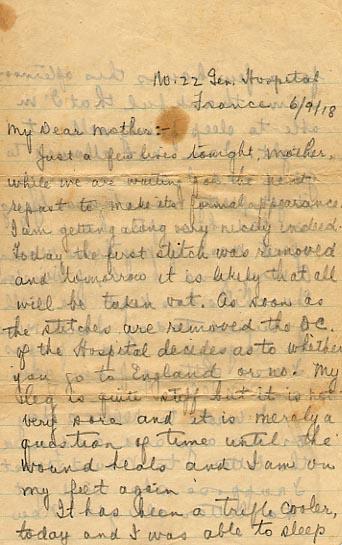 No. 22 Gen. Hospital
France 6/9/18
My Dear Mother:-
Just a few lines tonight, Mother,
while we are waiting for the next
repast to make its formal appearance.
I am getting along very nicely indeed.
Today the first stitch was removed
and tomorrow it is likely that all
will be taken out. As soon as
the stitches are removed the O.C.
of the Hospital decides as to whether
you go to England or no. My
leg is quite stiff but it is not
very sore and it is merely a
question of time until the
wound heals and I am on
my feet again.
It has been a trifle cooler,
today and I was able to sleep